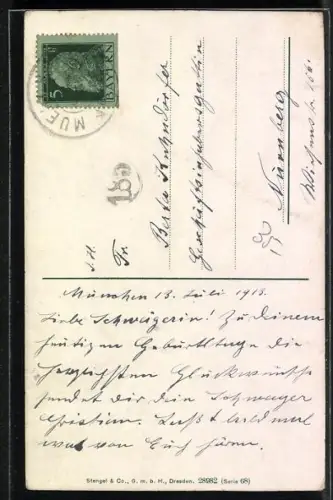 5
BAYERN
MUE
185
I. H.
Fr.
Berta
Geschäftsinhabersgattin
Nürnberg
München 18. Juli 1913.
Liebe Schwägerin! Zu deinem
heutigen Geburtstage die
herzlichsten Glückwünsche
sendet dir dein Schwager
Christian. Laßt bald mal
was von Euch hören.
Stengel & Co., G. m. b. H., Dresden. 28982 (Serie 68)